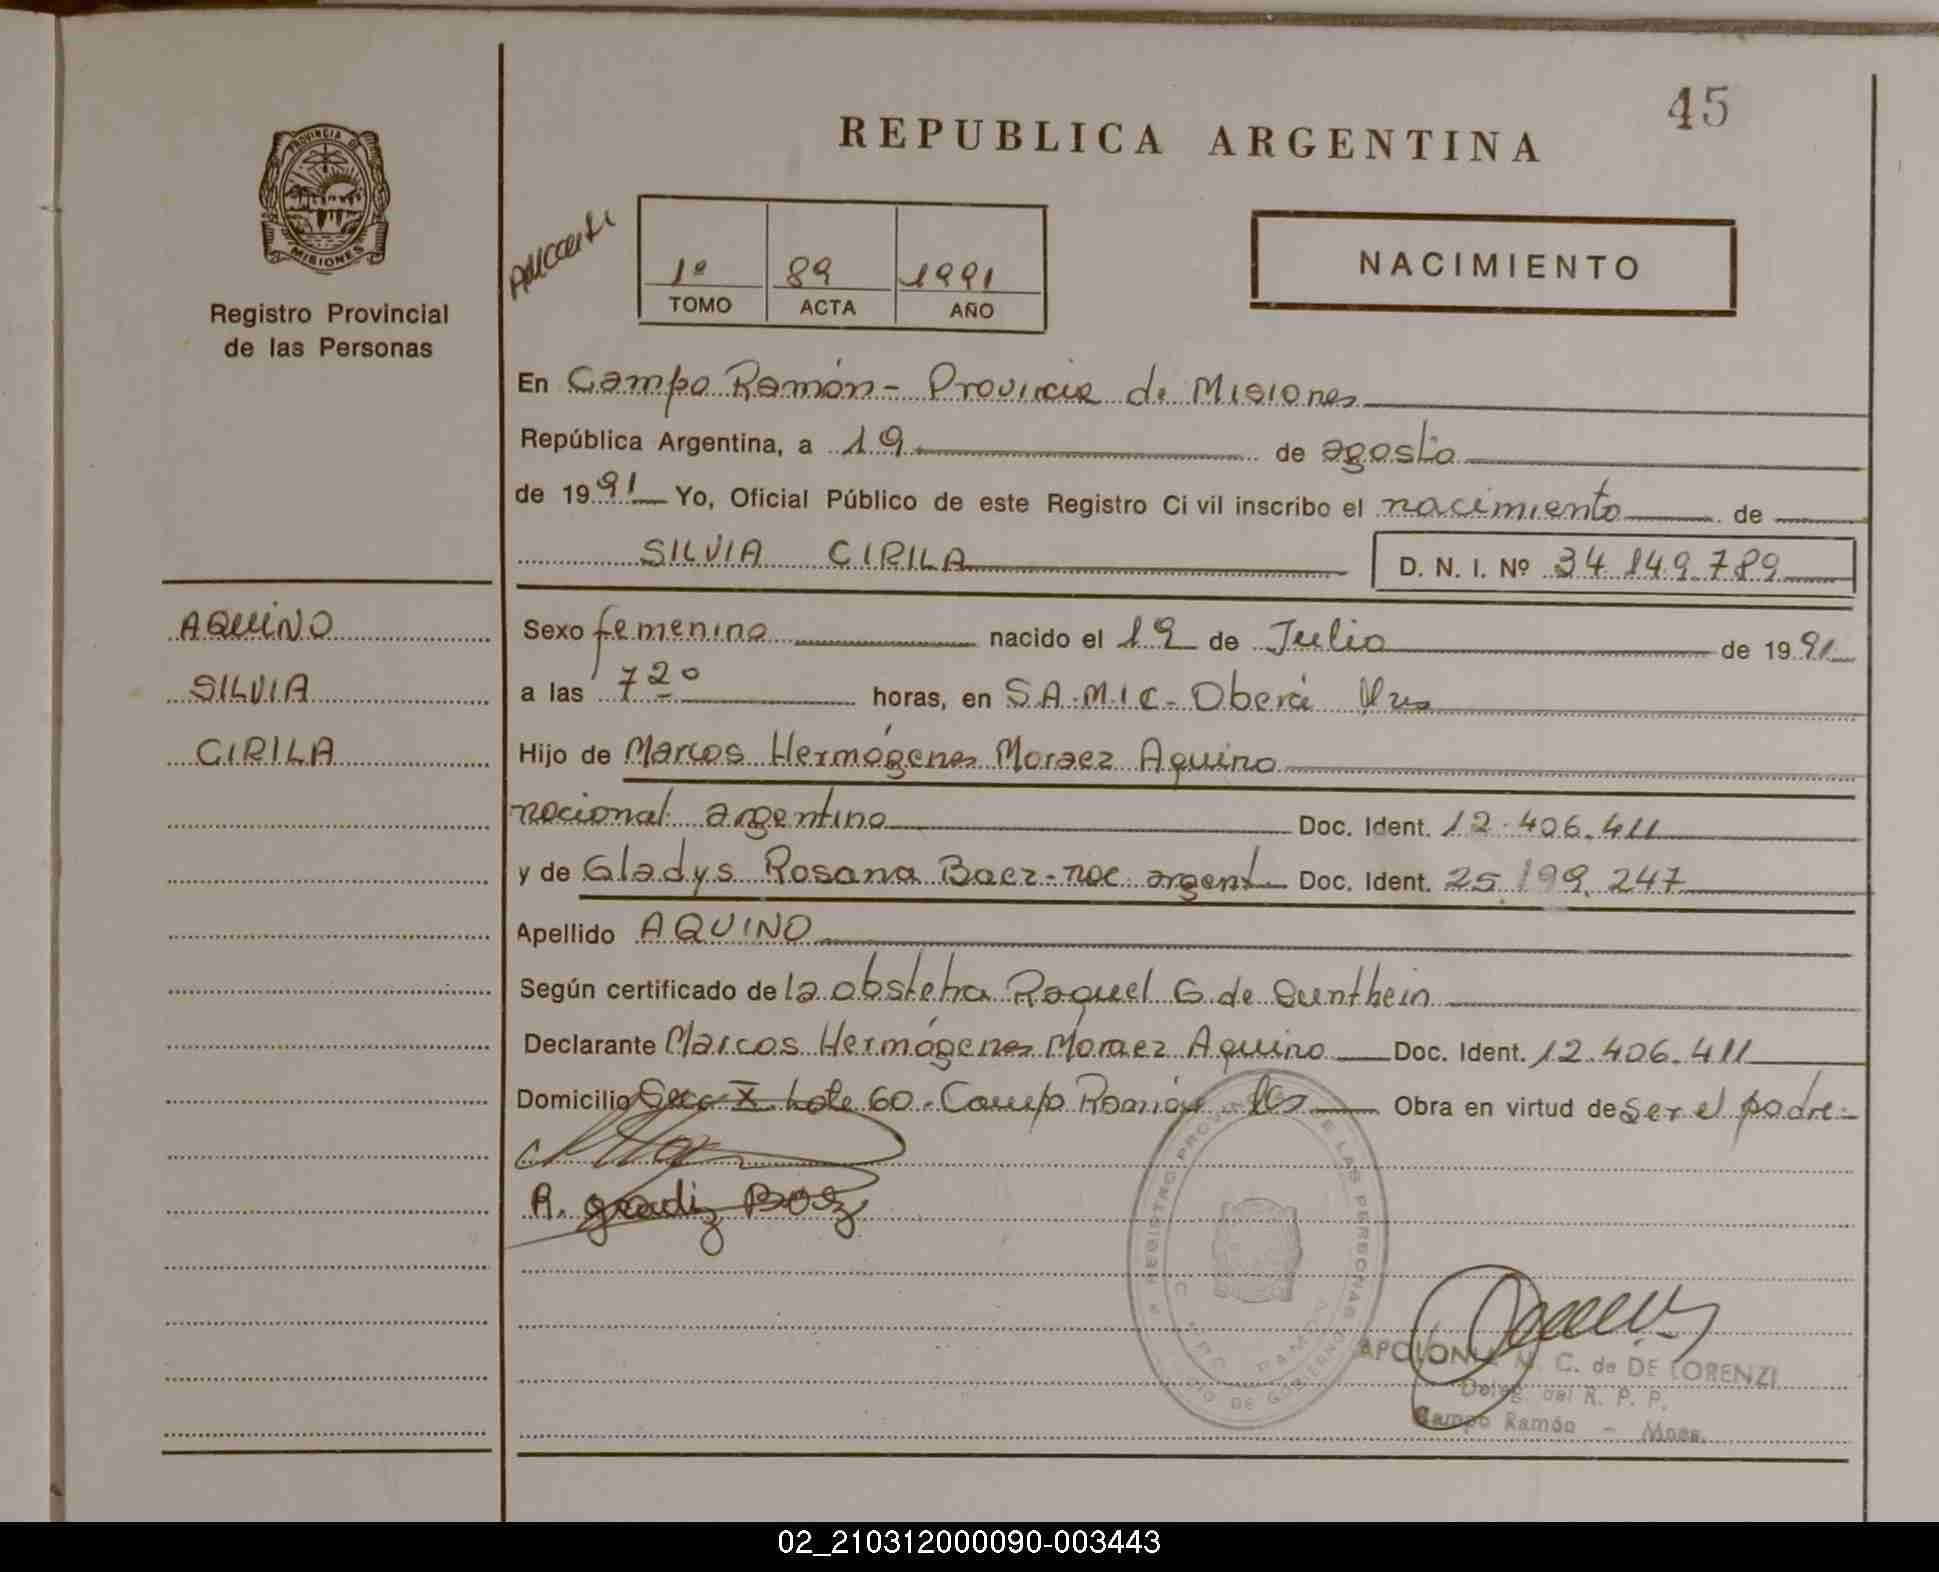 45
REPUBLICA ARGENTINA
PROVINCIA DE
MISIONES
Registro Provincial
de las Personas
1º 89 1991
TOMO ACTA AÑO
NACIMIENTO
En Campo Ramón - Provincia de Misiones
República Argentina, a 19 de agosto
de 1991 Yo, Oficial Público de este Registro Ci vil inscribo el nacimiento de
SILVIA CIRILA D. N. I. Nº 34.149.789
AQUINO
SILVIA
CIRILA
Sexo femenino nacido el 19 de Julio de 1991
a las 7 20 horas, en S.A.M.I.C - Oberá Mnes
Hijo de Marcos Hermógenes Moraez Aquino
nacional. argentino Doc. Ident. 12.406.411
y de Gladys Rosana Baez - nac. argent. Doc. Ident. 25.199.247
Apellido AQUINO
Según certificado de la obstetra Raquel G. de Sunthein
Declarante Marcos Hermógenes Moraez Aquino Doc. Ident. 12.406.411
Domicilio Secc X Lote 60 - Campo Ramón Obra en virtud de ser el padre -
REGISTRO PROVINCIAL DE LAS PERSONAS
DE GOBIERNO
APOLONIA N. C. de DE LORENZI
Deleg. del R. P. P.
Campo Ramón - Mnes.
02_210312000090-003443